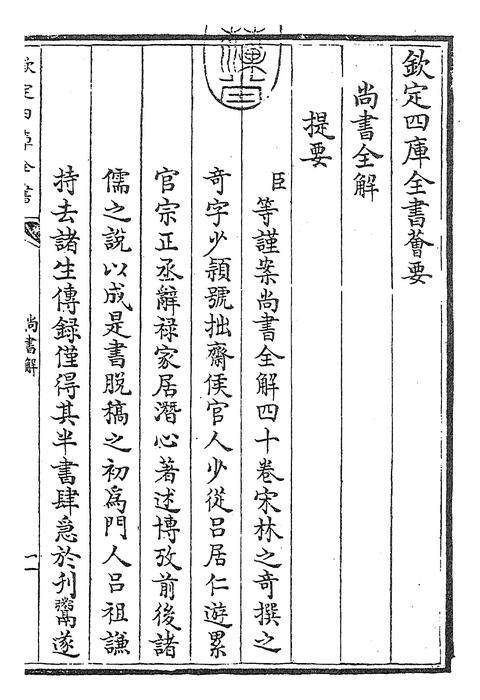 欽定四庫全書薈要
尚書全解
提要
臣等謹案尚書全解四十卷宋林之奇撰之
奇字少穎號拙齋侯官人少從吕居仁遊累
官宗正丞辭禄家居潛心著述博攷前後諸
儒之說以成是書脱稿之初為門人吕祖謙
持去諸生傳録僅得其半書肆急於刋鬻遂
欽定四庫全書
尚書解
一